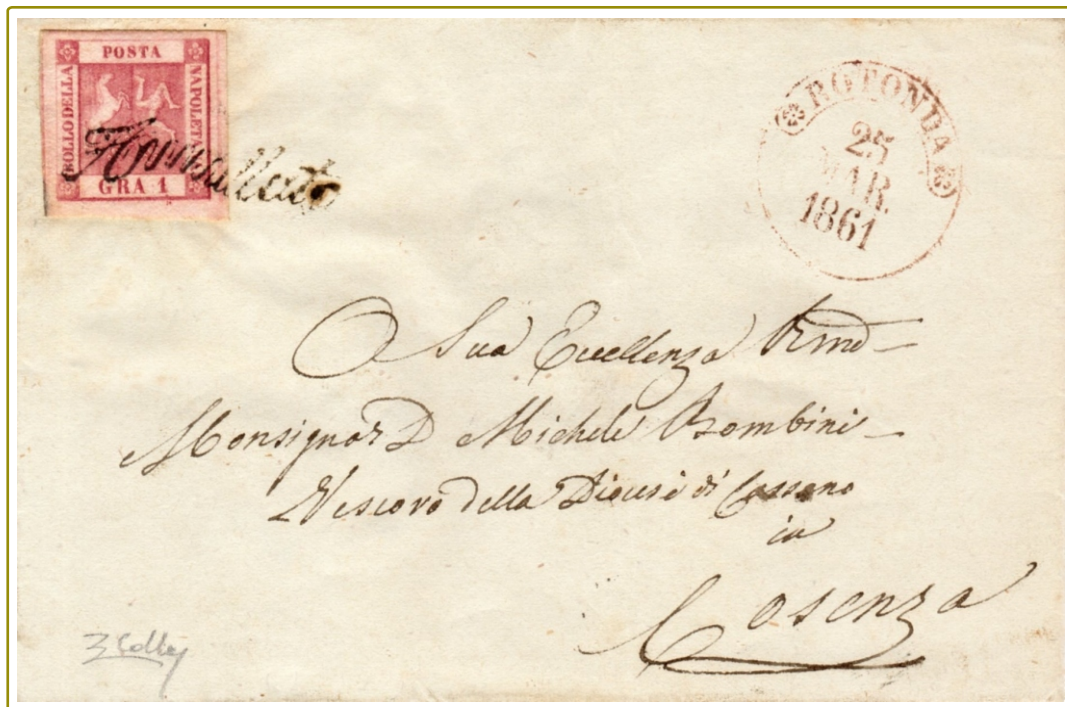 POSTA
BOLLO DELLA
NAPOLETA
GRA 1
Annullato
ROTONDA
25
MAR.
1861
A Sua Eccellenza Rmā
Monsignor D Michele Bombini
Vescovo della Diocesi di Cassano
in
Cosenza